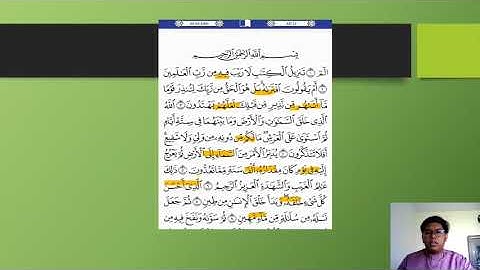 بِسْمِ اللَّهِ الرَّحْمَٰنِ الرَّحِيمِ
الٓمٓ ١ تَنزِيلُ الْكِتَٰبِ لَا رَيْبَ فِيهِ مِن رَّبِّ الْعَٰلَمِينَ
٢ أَمْ يَقُولُونَ افْتَرَىٰهُ بَلْ هُوَ الْحَقُّ مِن رَّبِّكَ لِتُنذِرَ قَوْمًا
مَّا أَتَىٰهُم مِّن نَّذِيرٍ مِّن قَبْلِكَ لَعَلَّهُمْ يَهْتَدُونَ ٣ اللَّهُ
الَّذِي خَلَقَ السَّمَٰوَٰتِ وَالْأَرْضَ وَمَا بَيْنَهُمَا فِي سِتَّةِ أَيَّامٍ
ثُمَّ اسْتَوَىٰ عَلَى الْعَرْشِ مَا لَكُم مِّن دُونِهِ مِن وَلِيٍّ وَلَا شَفِيعٍ
أَفَلَا تَتَذَكَّرُونَ ٤ يُدَبِّرُ الْأَمْرَ مِنَ السَّمَاءِ إِلَى الْأَرْضِ ثُمَّ يَعْرُجُ
إِلَيْهِ فِي يَوْمٍ كَانَ مِقْدَارُهُ أَلْفَ سَنَةٍ مِّمَّا تَعُدُّونَ ٥ ذَٰلِكَ
عَٰلِمُ الْغَيْبِ وَالشَّهَٰدَةِ الْعَزِيزُ الرَّحِيمُ ٦ الَّذِي أَحْسَنَ
كُلَّ شَيْءٍ خَلَقَهُ وَبَدَأَ خَلْقَ الْإِنسَٰنِ مِن طِينٍ ٧ ثُمَّ جَعَلَ
نَسْلَهُ مِن سُلَٰلَةٍ مِّن مَّاءٍ مَّهِينٍ ٨ ثُمَّ سَوَّىٰهُ وَنَفَخَ فِيهِ مِن